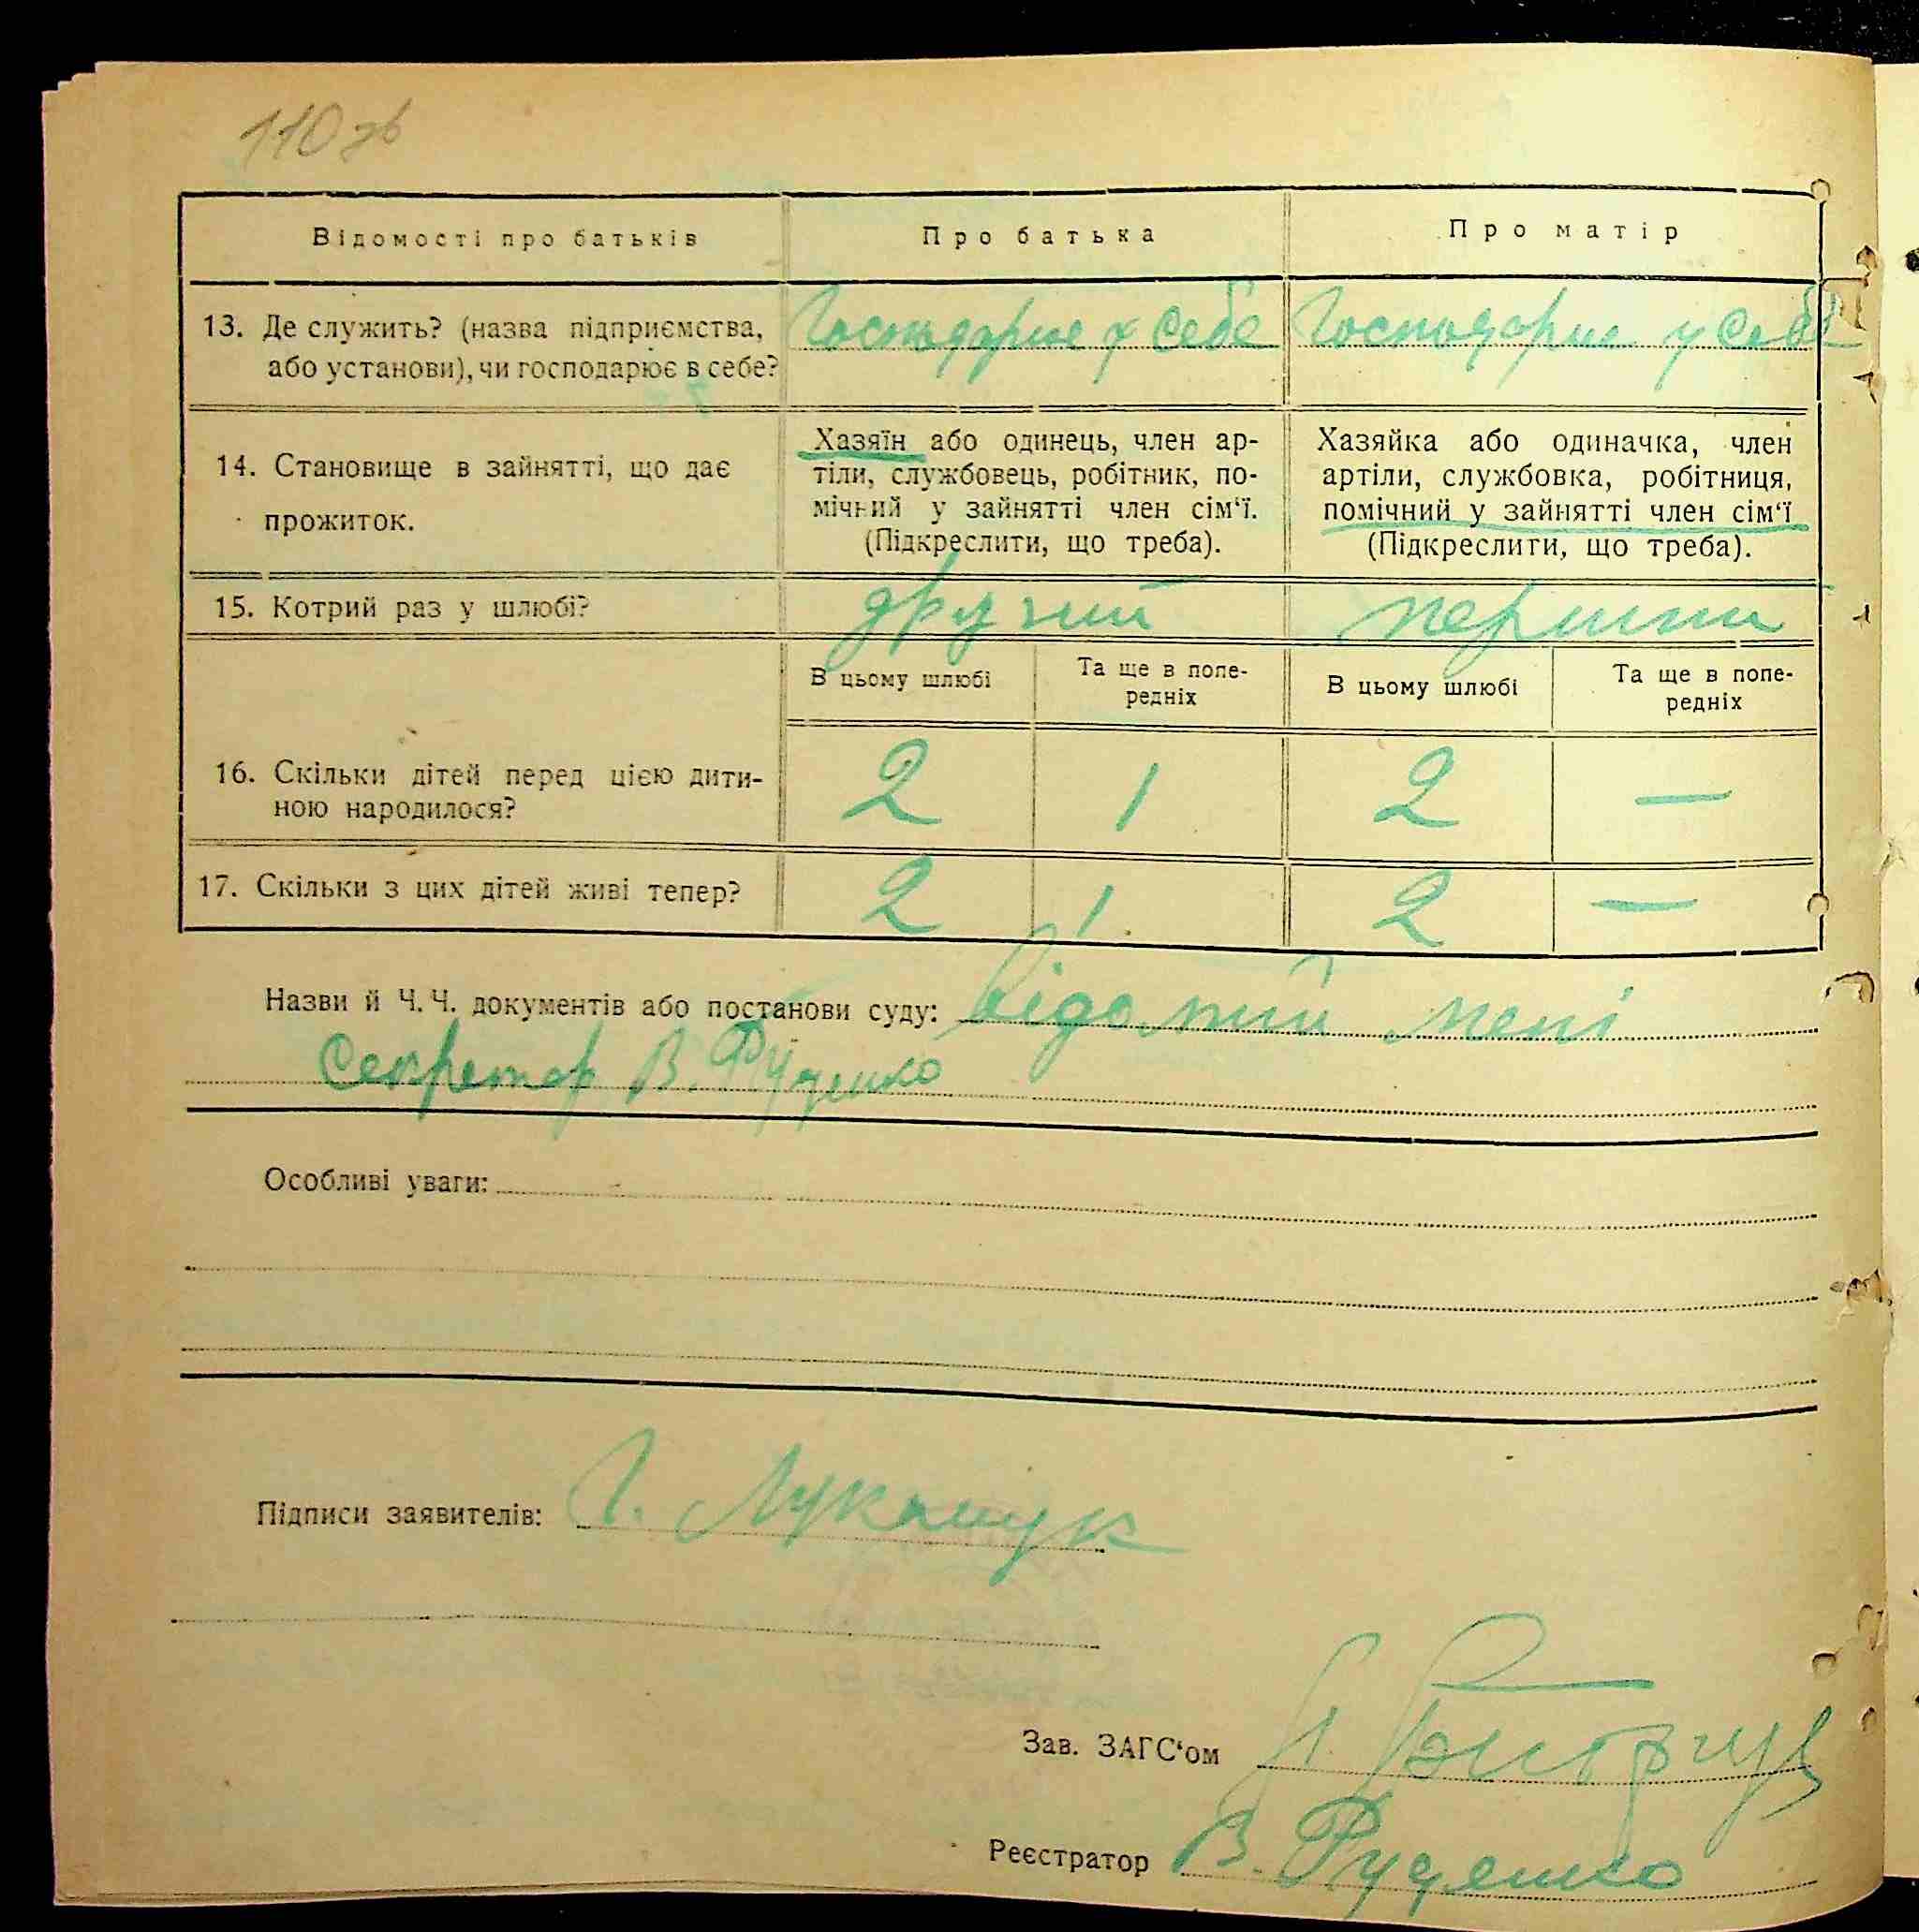 110 зв
Відомості про батьків
Про батька
Про матір
13. Де служить? (назва підприємства,
або установи), чи господарює в себе?
Господарює у себе
Господарює у себе
14. Становище в зайнятті, що дає
прожиток.
Хазяїн або одинець, член ар-
тіли, службовець, робітник, по-
мічний у зайнятті член сім'ї.
(Підкреслити, що треба).
Хазяйка або одиначка, член
артіли, службовка, робітниця,
помічний у зайнятті член сім'ї
(Підкреслити, що треба).
15. Котрий раз у шлюбі?
другий
перший
В цьому шлюбі
Та ще в попе-
редніх
В цьому шлюбі
Та ще в попе-
редніх
16. Скільки дітей перед цією дити-
ною народилося?
2
1
2
—
17. Скільки з цих дітей живі тепер?
2
1
2
—
Назви й Ч.Ч. документів або постанови суду: Відомий мені
Секретар В. Руденко
Особливі уваги:
Підписи заявителів: Г. Лукашук
Зав. ЗАГС'ом
Реєстратор В. Руденко